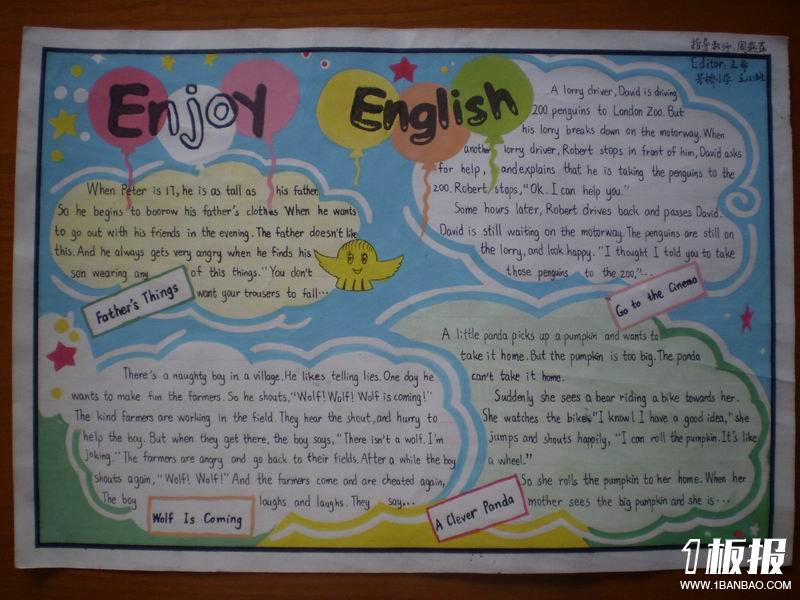 指导教师:周燕萍
Editor:
Enjoy English
When Peter is 17, he is as tall as his father.
So he begins to boorow his father's clothes When he wants
to go out with his friends in the evening. The father doesn't like
this. And he always gets very angry when he finds his
son wearing any of this things. "You don't
want your trousers to fall...
Father's Things
A lorry driver, David is driving
200 penguins to London Zoo. But
his lorry breaks down on the motorway. When
another lorry driver, Robert stops in front of him, David asks
for help, and explains that he is taking the penguins to the
zoo. Robert stops, "Ok. I can help you."
Some hours later, Robert drives back and passes David.
David is still waiting on the motorway. The penguins are still on
the lorry, and look happy. "I thought I told you to take
those penguins to the zoo,"...
Go to the Cinema
There's a naughty boy in a village. He likes telling lies. One day he
wants to make fun the farmers. So he shouts, "Wolf! Wolf! Wolf is coming!"
The kind farmers are working in the field. They hear the shout, and hurry to
help the boy. But when they get there, the boy says, "There isn't a wolf. I'm
joking." The farmers are angry and go back to their fields. After a while the boy
shouts again, "Wolf! Wolf!" And the farmers come and are cheated again,
The boy laughs and laughs. They say...
Wolf Is Coming
A little panda picks up a pumpkin and wants to
take it home. But the pumpkin is too big. The panda
can't take it home.
Suddenly she sees a bear riding a bike towards her.
She watches the bike, "I know! I have a good idea," she
jumps and shouts happily, "I can roll the pumpkin. It's like
a wheel."
So she rolls the pumpkin to her home. When her
mother sees the big pumpkin and she is...
A Clever Panda
1板报
WWW.1BANBAO.COM